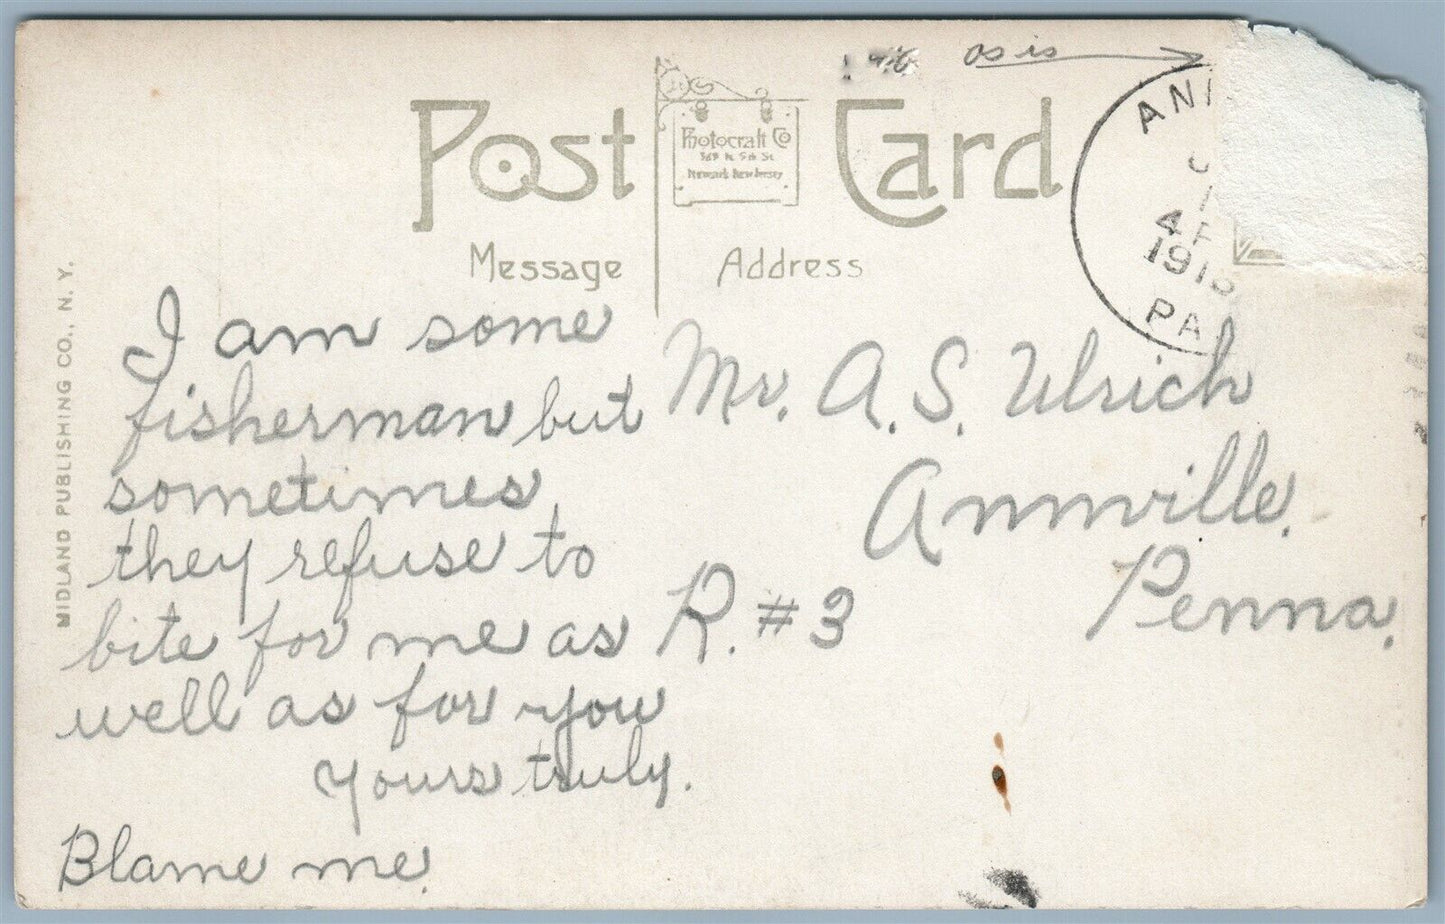 as is
Post Card
Photocraft Co
Newark New Jersey
Message
Address
ANN
4 P
191
PA
MIDLAND PUBLISHING CO., N. Y.
I am some
fisherman but
sometimes
they refuse to
bite for me as
well as for you
yours truly.
Blame me.
Mr. A. S. Ulrich
Annville.
Penna.
R. #3